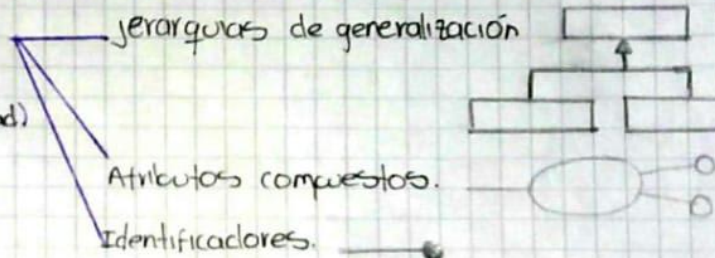 Jerarquias de generalización
d)
Atributos compuestos.
Identificadores.